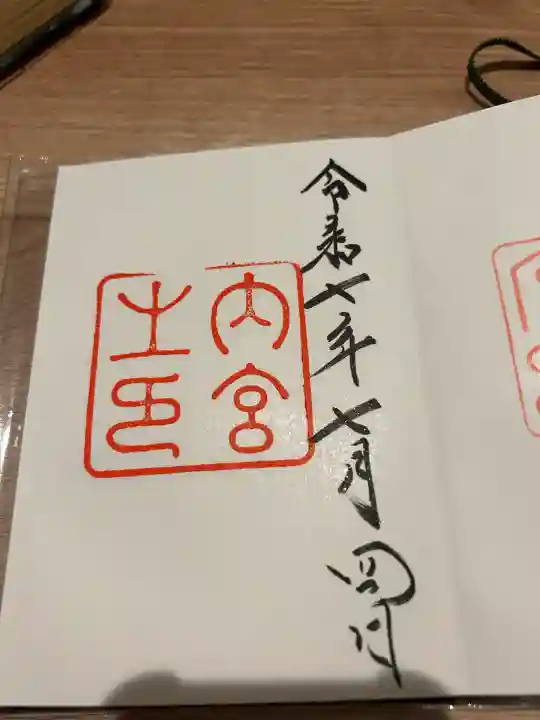 令和七年七月四日
内宮
之印